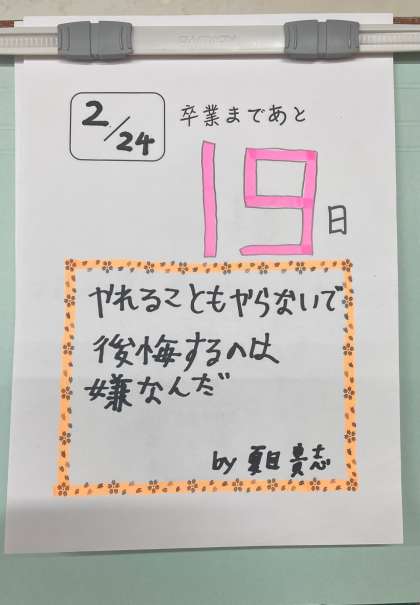 2/24
卒業まであと
19
日
やれることもやらないで
後悔するのは
嫌なんだ
by 夏目貴志